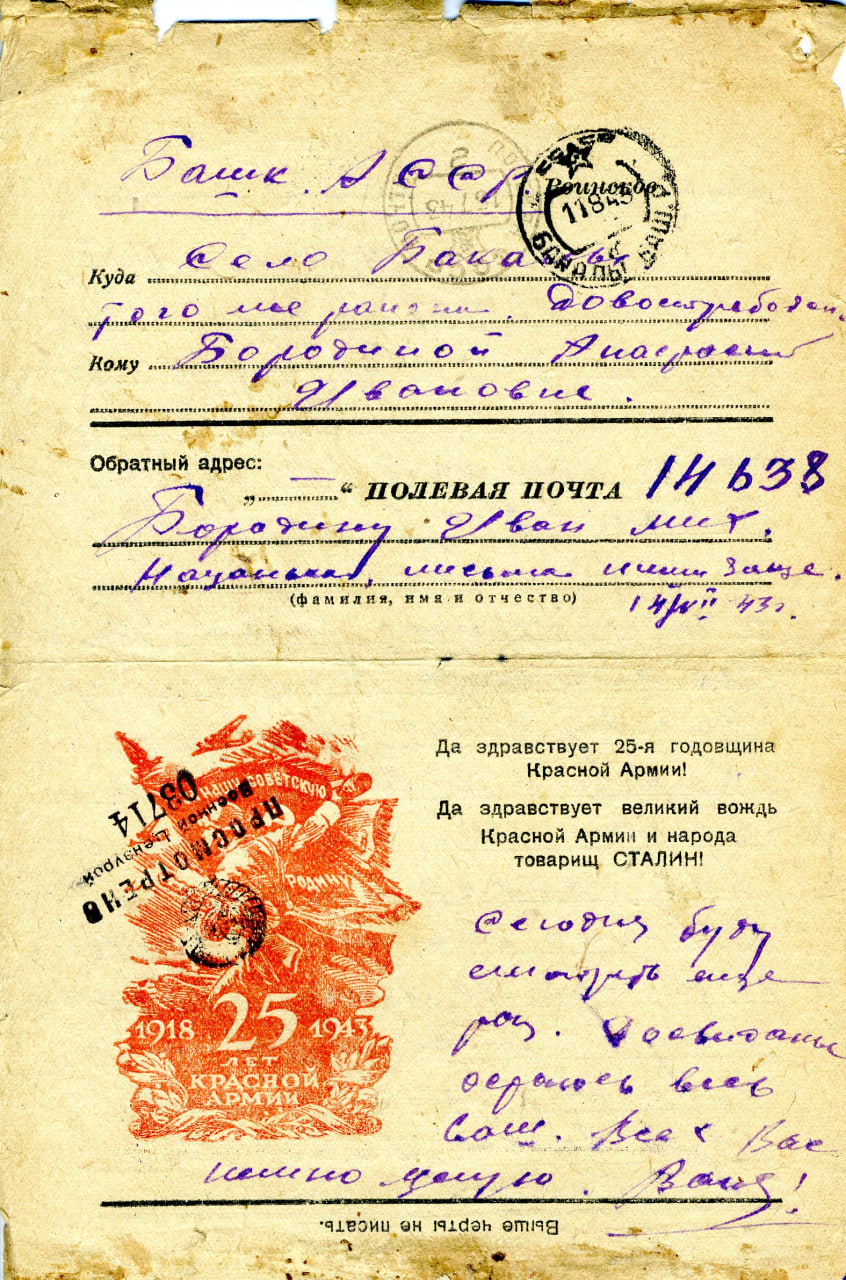 Башк. АССР.
Воинское
11 8 43
БАКАЛЫ БАШ.
Куда Село Бакалы
того же района. Довостребован.
Кому Бородиной Анастасии
Ивановне.
Обратный адрес:
„ — “ ПОЛЕВАЯ ПОЧТА 14638
Бородину Иван Мих.
письма пиши чаще.
(фамилия, имя и отчество)
14/VII 43г.
Да здравствует 25-я годовщина
Красной Армии!
Да здравствует великий вождь
Красной Армии и народа
товарищ СТАЛИН!
НАШУ СОВЕТСКУЮ
РОДИНУ
ПРОСМОТРЕНО
Военной Цензурой
03714
1918 25 1943
ЛЕТ
КРАСНОЙ
АРМИИ
Сегодня буду
смотреть еще
раз. Досвиданье
остаюсь весь
Ваш. Всех Вас
нежно целую. Ваня!
Выше черты не писать.